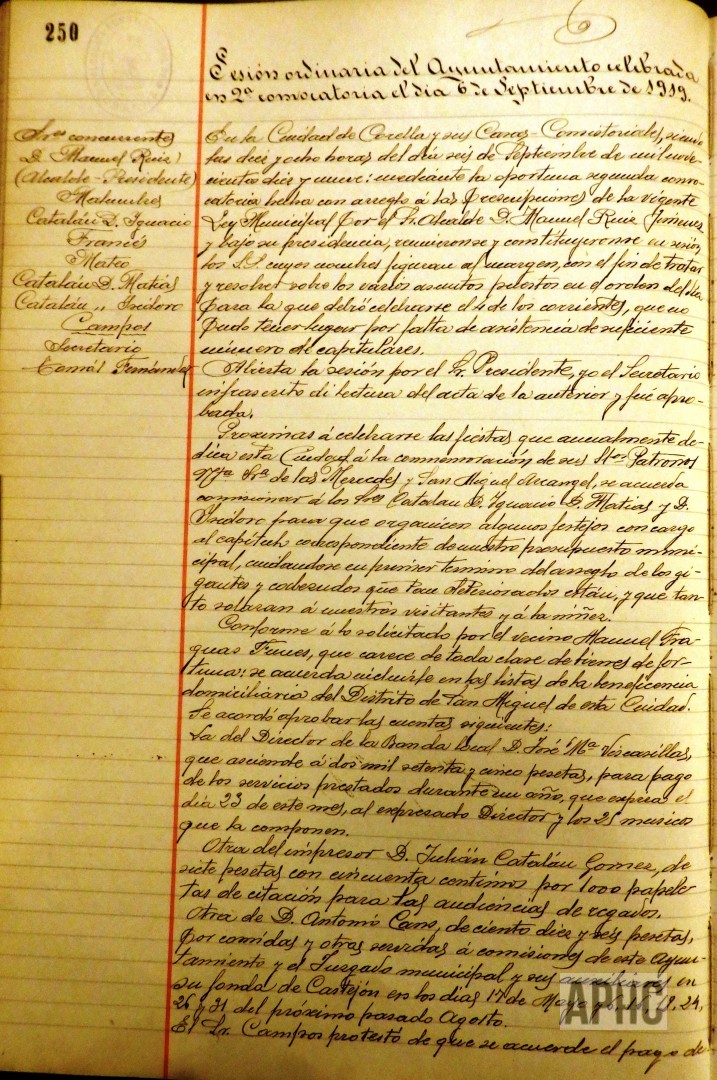 250
Sesión ordinaria del Ayuntamiento celebrada
en 2ª convocatoria el día 6 de Septiembre de 1919.
Sres concurrentes
D. Manuel Ruiz
(Alcalde-Presidente)
Malumbres
Catalán D. Ignacio
Francés
Mateo
Catalán D. Matías
Catalán " Isidoro
Campos
Secretario
Tomás Fernández
En la Ciudad de Corella y sus Casas-Consistoriales, siendo
las diez y ocho horas del día seis de Septiembre de mil nove-
cientos diez y nueve: mediante la oportuna segunda convo-
catoria hecha con arreglo á las prescripciones de la vigente
Ley Municipal por el Sr. Alcalde D. Manuel Ruiz Jimenez
y bajo su presidencia, reunieronse y constituyeronse en sesión
los S.S. cuyos nombres figuran al margen, con el fin de tratar
y resolver sobre los varios asuntos puestos en el orden del día
para la que debió celebrarse el 4 de los corrientes, que no
pudo tener lugar por falta de asistencia de suficiente
número de capitulares.
Abierta la sesión por el Sr. Presidente, yo el Secretario
infrascrito di lectura del acta de la anterior y fué apro-
bada.
Proximas á celebrarse las fiestas que anualmente de-
dica esta Ciudad á la conmemoración de sus Stos Patronos
Ntra Sra de las Mercedes y San Miguel Arcangel, se acuerda
comisionar á los Sres Catalán D. Ignacio D. Matias y D.
Isidoro para que organicen algunos festejos con cargo
al capítulo correspondiente de nuestro presupuesto muni-
cipal, cuidandose en primer termino del arreglo de los gi-
gantes y cabezudos que tan deteriorados están, y que tan-
to solazan á nuestros visitantes y á la niñez.
Conforme á lo solicitado por el vecino Manuel Fra-
guas Funes, que carece de toda clase de bienes de for-
tuna: se acuerda incluirle en las listas de la beneficencia
domiciliaria del Distrito de San Miguel de esta Ciudad.
Se acordó aprobar las cuentas siguientes:
La del Director de la Banda local D. José Mª Viscasillas,
que asciende á dos mil setenta y cinco pesetas, para pago
de los servicios prestados durante un año, que expira el
día 23 de este mes, al expresado Director y los 25 musicos
que la componen.
Otra del impresor D. Julián Catalán Gomez, de
siete pesetas con cincuenta centimos por 1000 papele-
tas de citación para las audiencias de regados.
Otra de D. Antonio Cano, de ciento diez y seis pesetas,
por comidas y otras servidas á comisiones de este Ayun-
tamiento y el Juzgado municipal y sus auxiliares en
su fonda de Castejón en los días 17 de Mayo 18, 24,
26 y 31 del próximo pasado Agosto.
El Sr. Campos protestó de que se acuerde el pago de
APHC